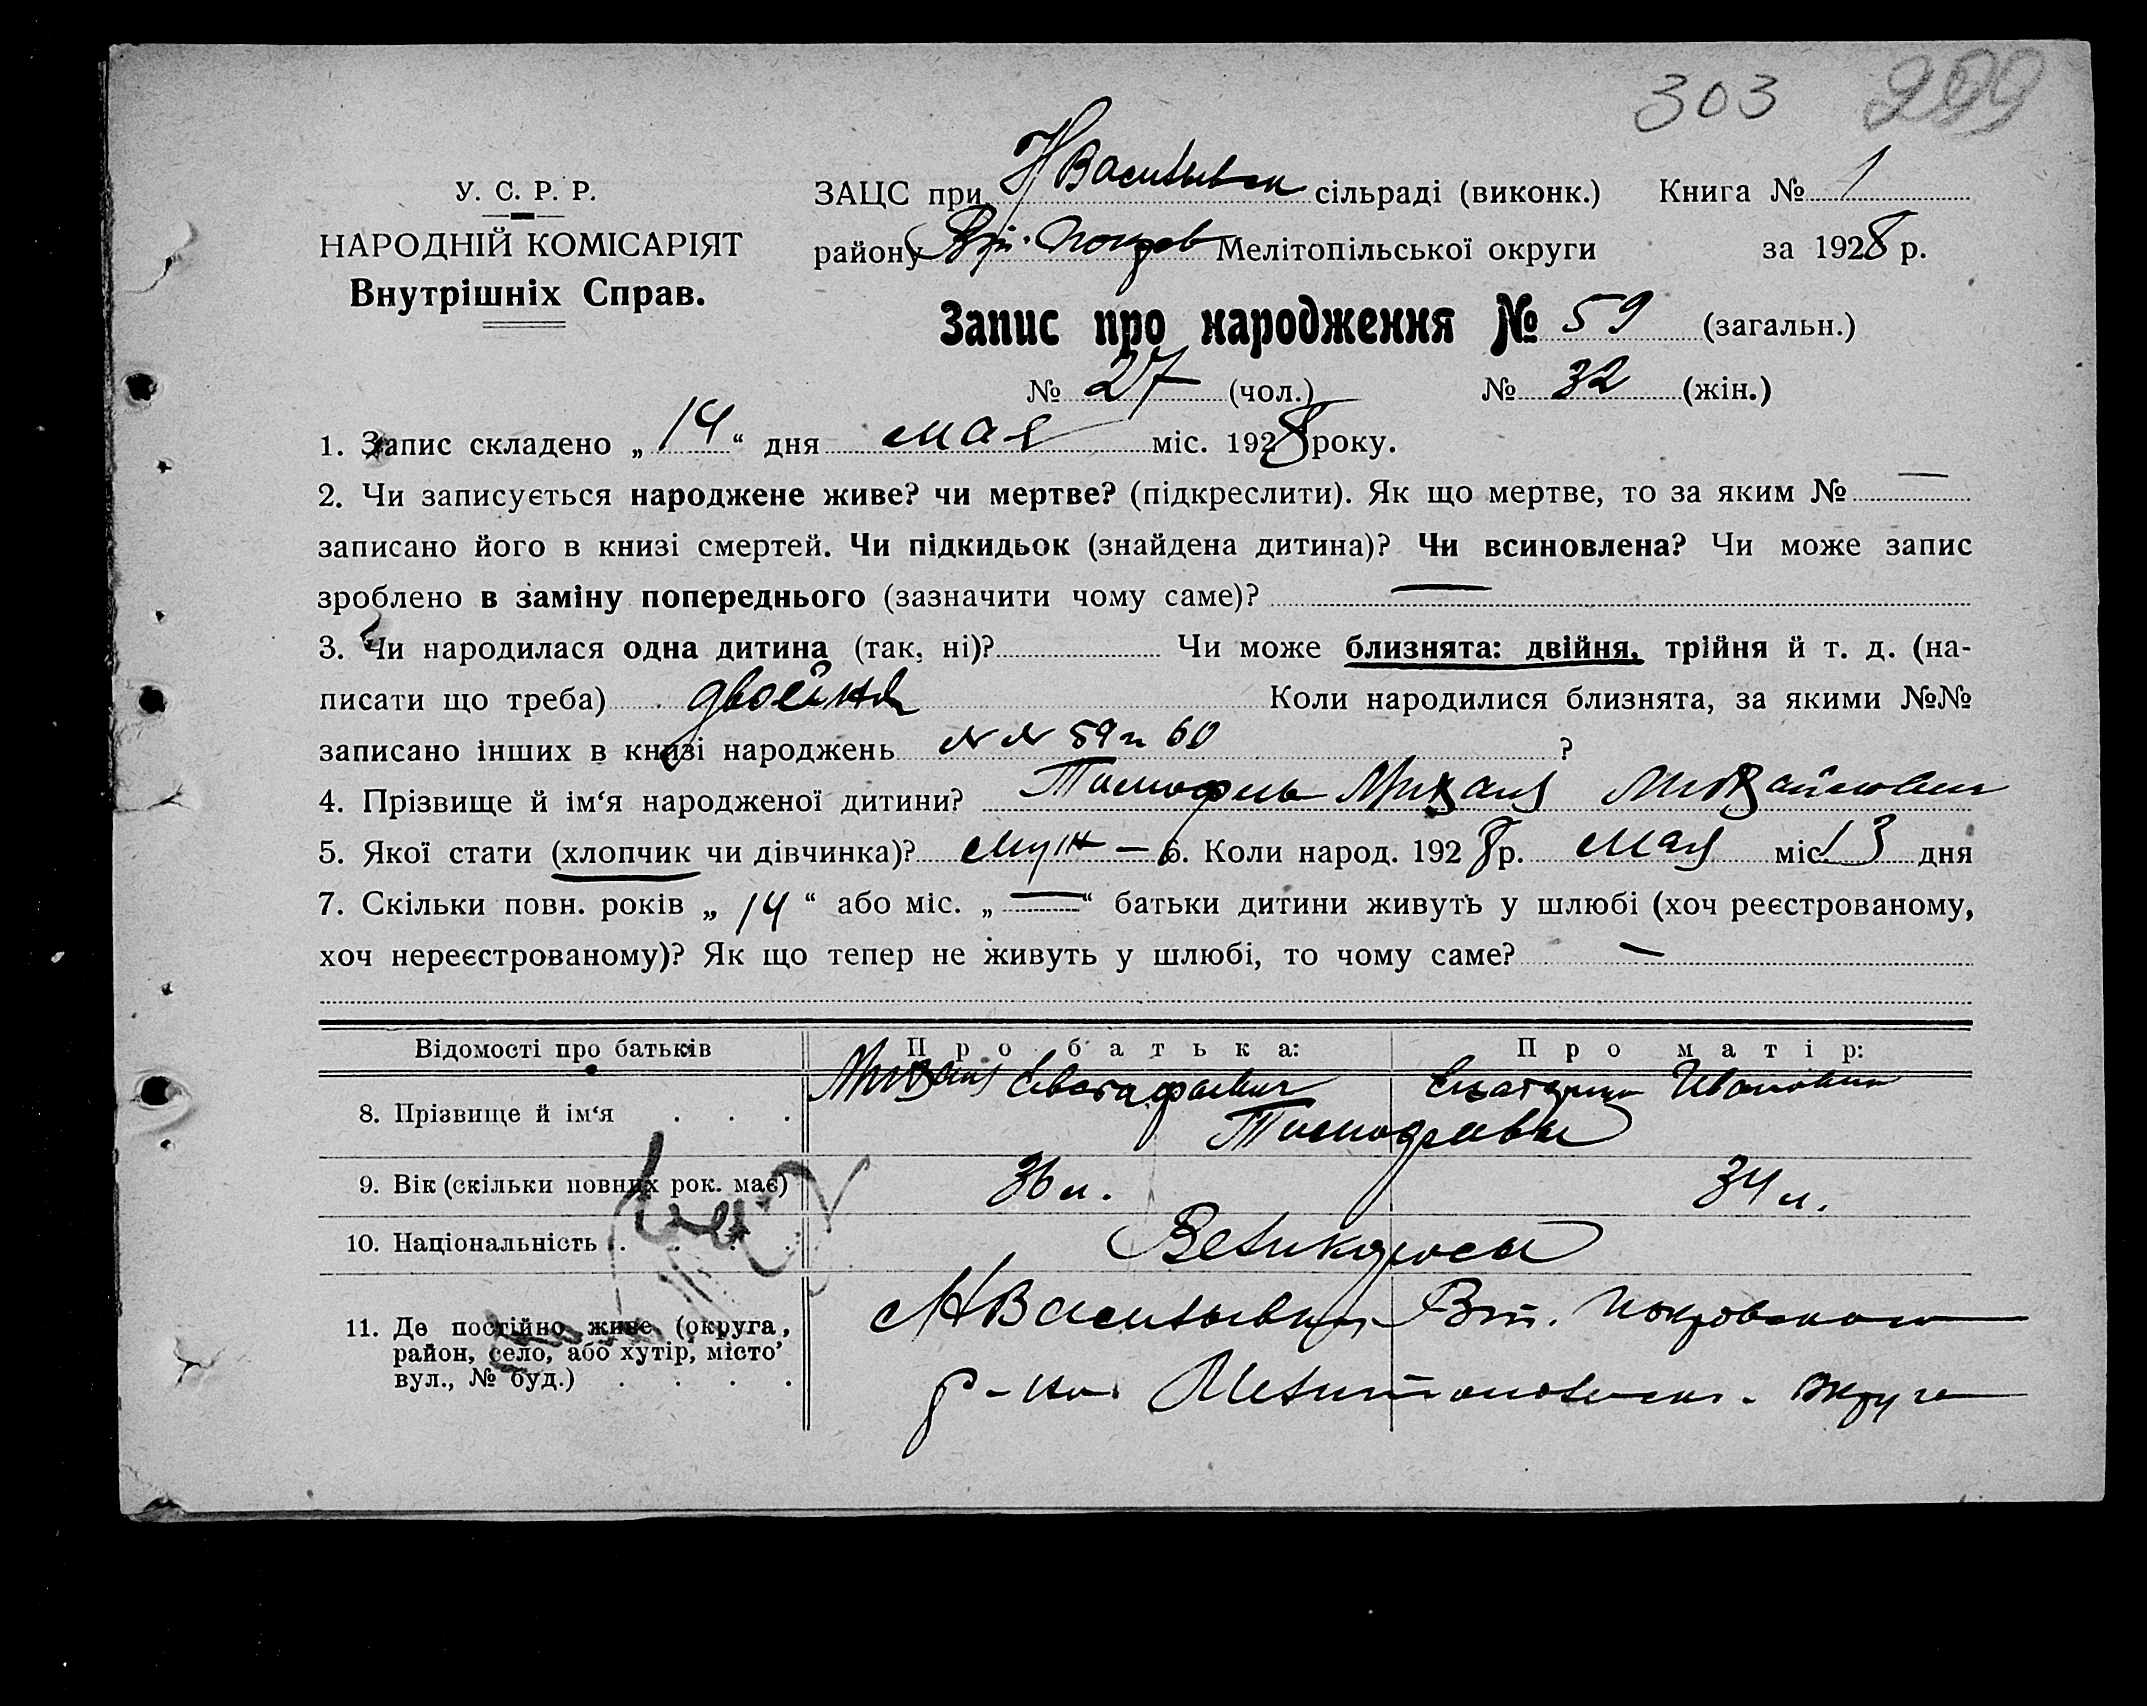 303 299
У. С. Р. Р.
НАРОДНІЙ КОМІСАРІЯТ
Внутрішніх Справ.
ЗАЦС при Н Васильевск сільраді (виконк.) Книга № 1
району Вт. Покров Мелітопільської округи за 1928 р.
Запис про народження № 59 (загальн.)
№ 27 (чол.) № 32 (жін.)
1. Запис складено „ 14 “ дня мая міс. 1928 року.
2. Чи записується народжене живе? чи мертве? (підкреслити). Як що мертве, то за яким № —
записано його в книзі смертей. Чи підкидьок (знайдена дитина)? Чи всиновлена? Чи може запис
зроблено в заміну попереднього (зазначити чому саме)? —
3. Чи народилася одна дитина (так, ні)? Чи може близнята: двійня, трійня й т. д. (на-
писати що треба) двойня Коли народилися близнята, за якими №№
записано інших в книзі народжень № № 59 и 60 ?
4. Прізвище й ім‘я народженої дитини? Тимофеев Михаил Михайлович
5. Якої стати (хлопчик чи дівчинка)? муж — 6. Коли народ. 1928 р. мая міс. 13 дня
7. Скільки повн. років „ 14 “ або міс. „ — “ батьки дитини живуть у шлюбі (хоч реєстрованому,
хоч нереєстрованому)? Як що тепер не живуть у шлюбі, то чому саме? —
Відомості про батьків Про батька: Про матір:
8. Прізвище й ім‘я . . . Михаил Евстафьевич Екатерина Ивановна
Тимофеевы
9. Вік (скільки повних рок. має) 36 л. 34 л.
10. Національність . . . . Великоросы
11. Де постійно живе (округа,
район, село, або хутір, місто
вул., № буд.) . . . .
Н Васильевка Вт. Покровского
р-на Мелитопольск. округа